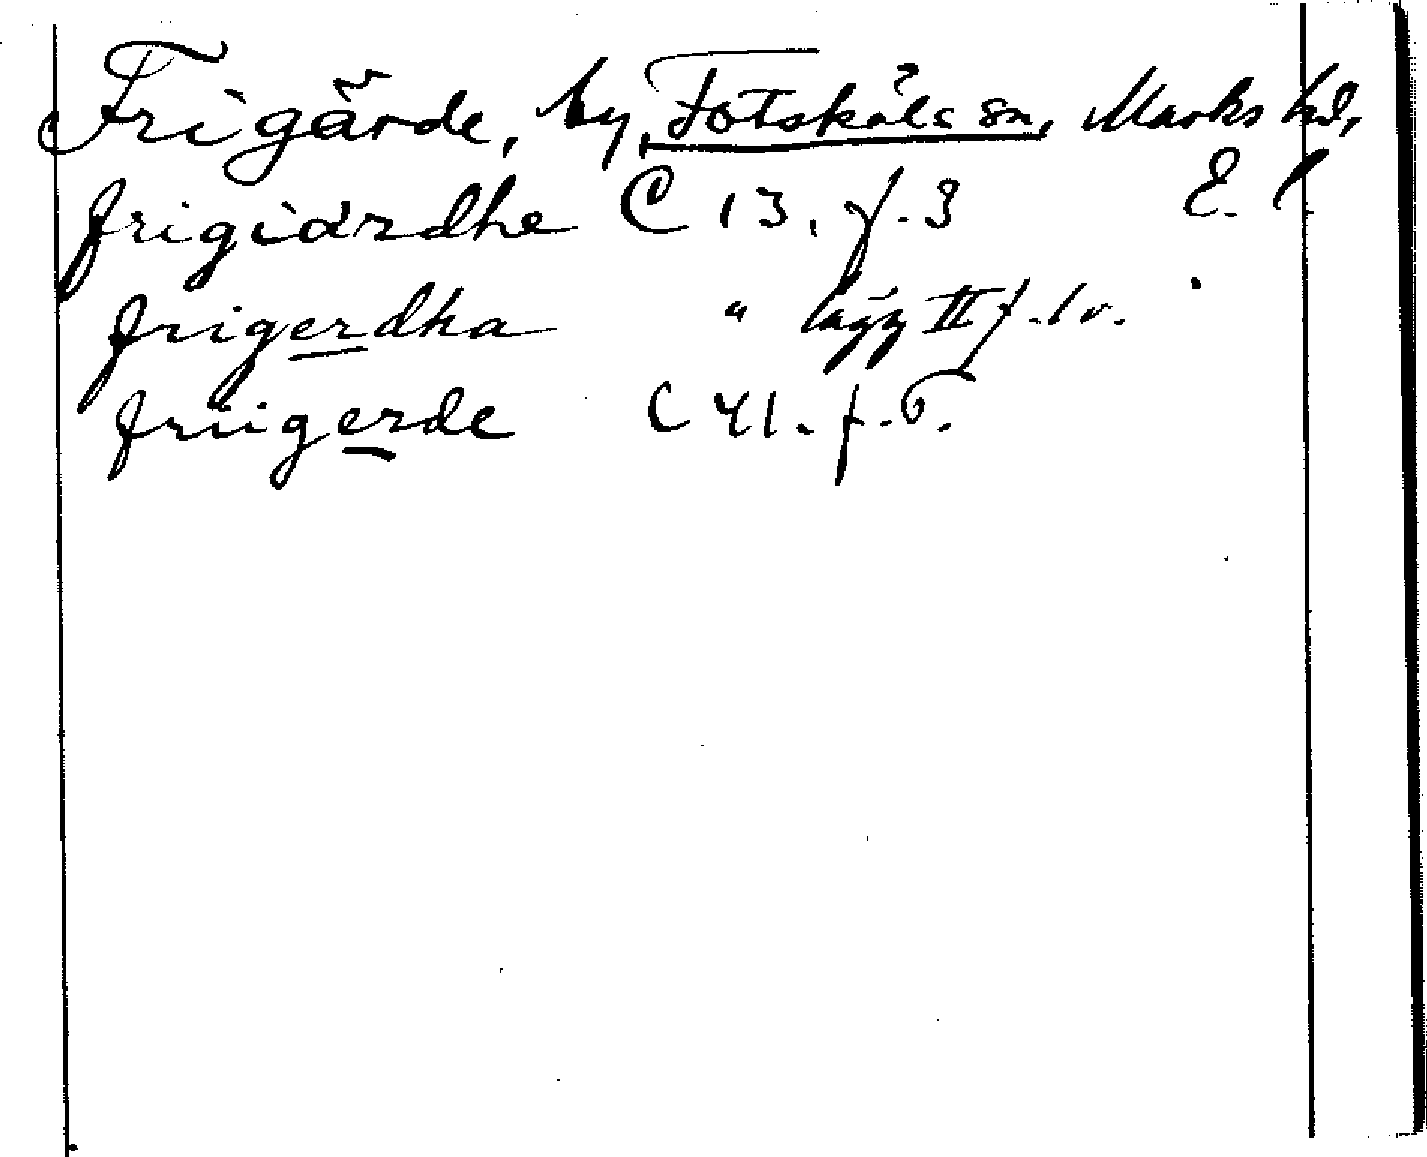 Frigärde, by, Fotskäls sn, Marks hd,
frigiardhe C 13. f. 3 E. l.
frigerdha " lägg II f. 1 v.
friigerde C 41. f. 6.